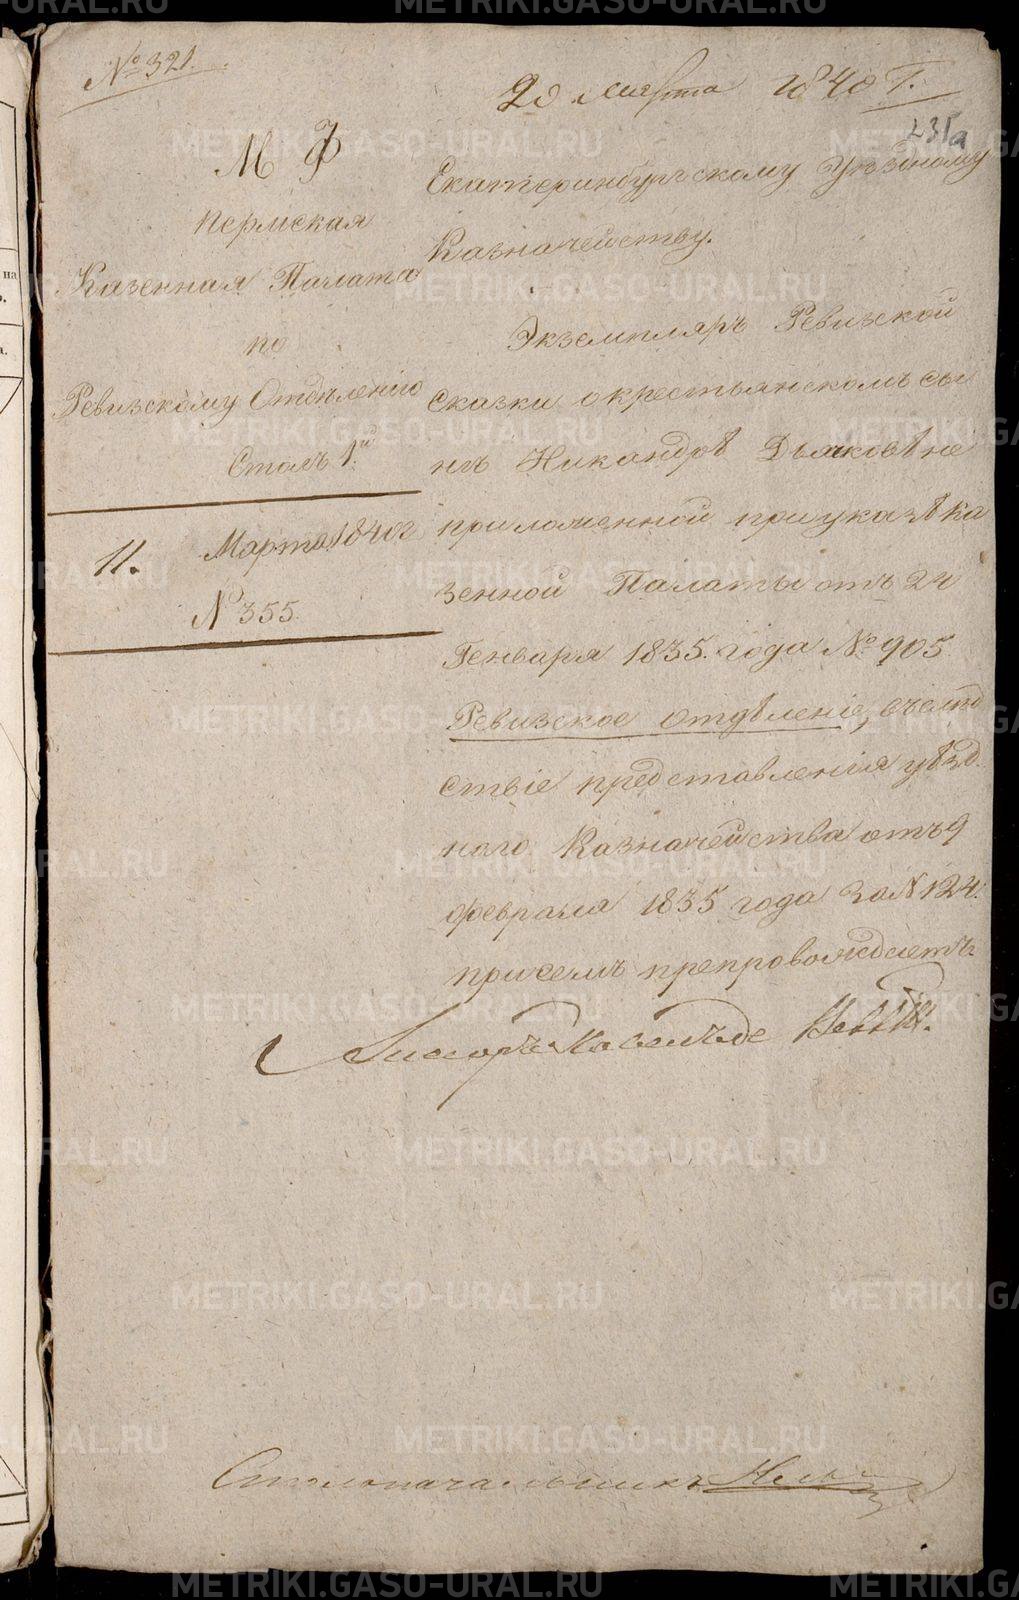 № 321.
20 Марта 1840 г.
231а
М Ф
Пермская
Казенная Палата
по
Ревизскому Отдѣленію
Столъ 1й
11. Марта 1840 г
№ 355.
Екатеринбургскому Уѣздному
Казначейству.
Экземпляръ Ревизской
сказки о крестьянскомъ сы
нѣ Никандрѣ Дьячковѣ не
приложенной при указѣ Ка
зенной Палаты отъ 24
Генваря 1835. года № 905
Ревизское отдѣленіе,
ствіе представленія уѣзд.
наго Казначейства отъ 9
февраля 1835 года за № 124.
при семъ препровождаетъ.
Столоначальникъ